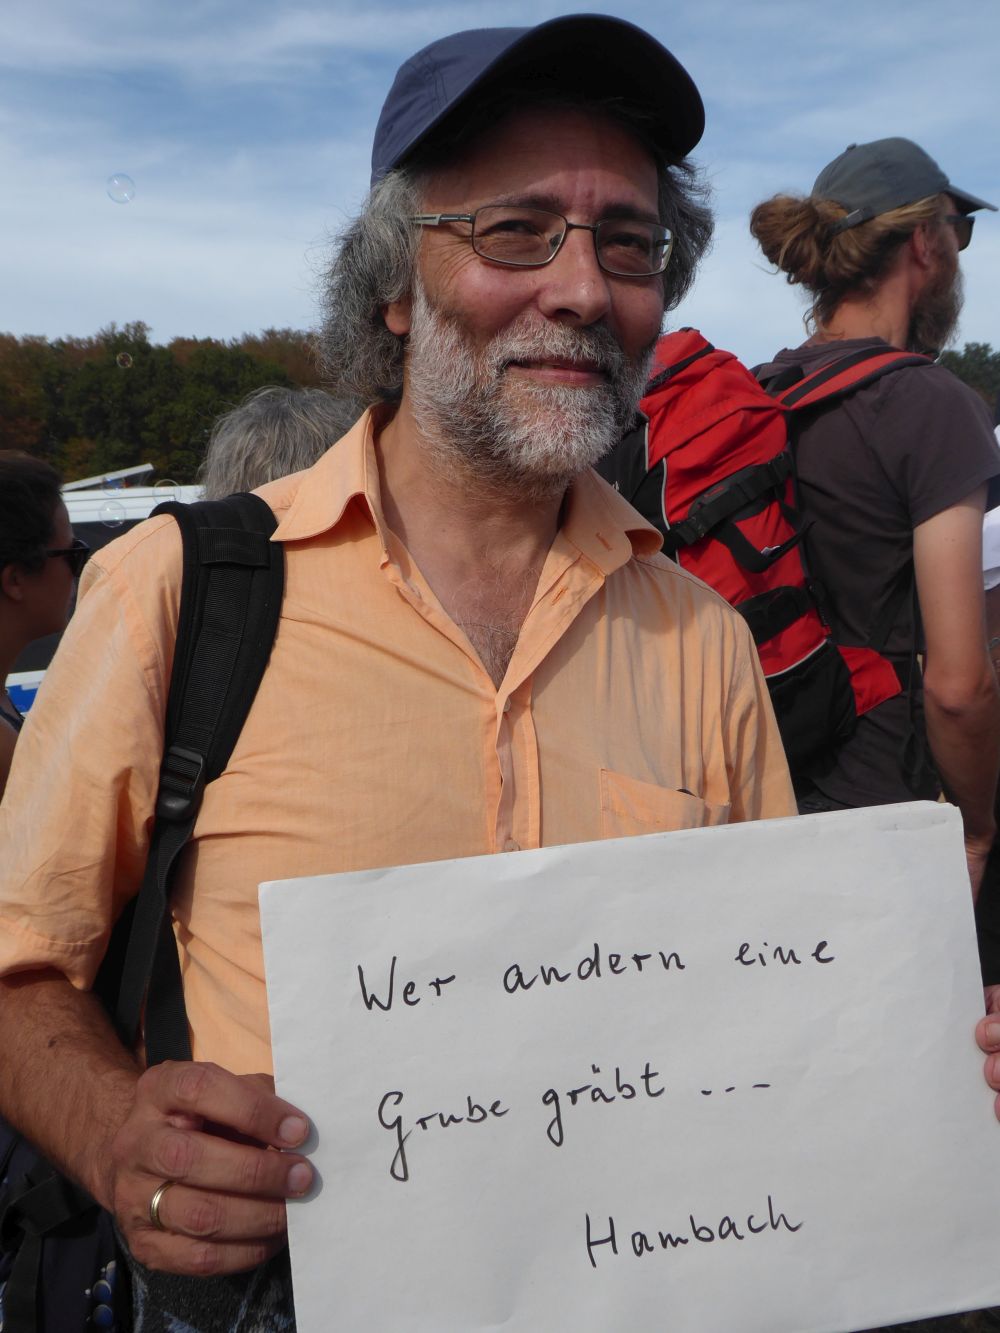 Wer andern eine
Grube gräbt ---
Hambach